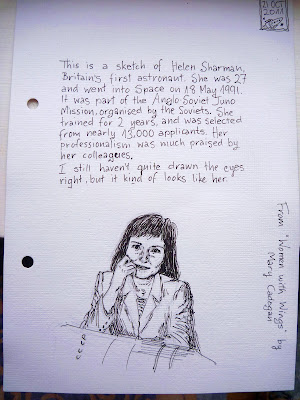 21 OCT
2011
This is a sketch of Helen Sharman,
Britain's first astronaut. She was 27
and went into Space on 18 May 1991.
It was part of the Anglo-Soviet Juno
Mission, organised by the Soviets. She
trained for 2 years, and was selected
from nearly 13,000 applicants. Her
professionalism was much praised by
her colleagues.
I still haven't quite drawn the eyes
right, but it kind of looks like her.
From "Women with Wings" by
Mary Cadogan